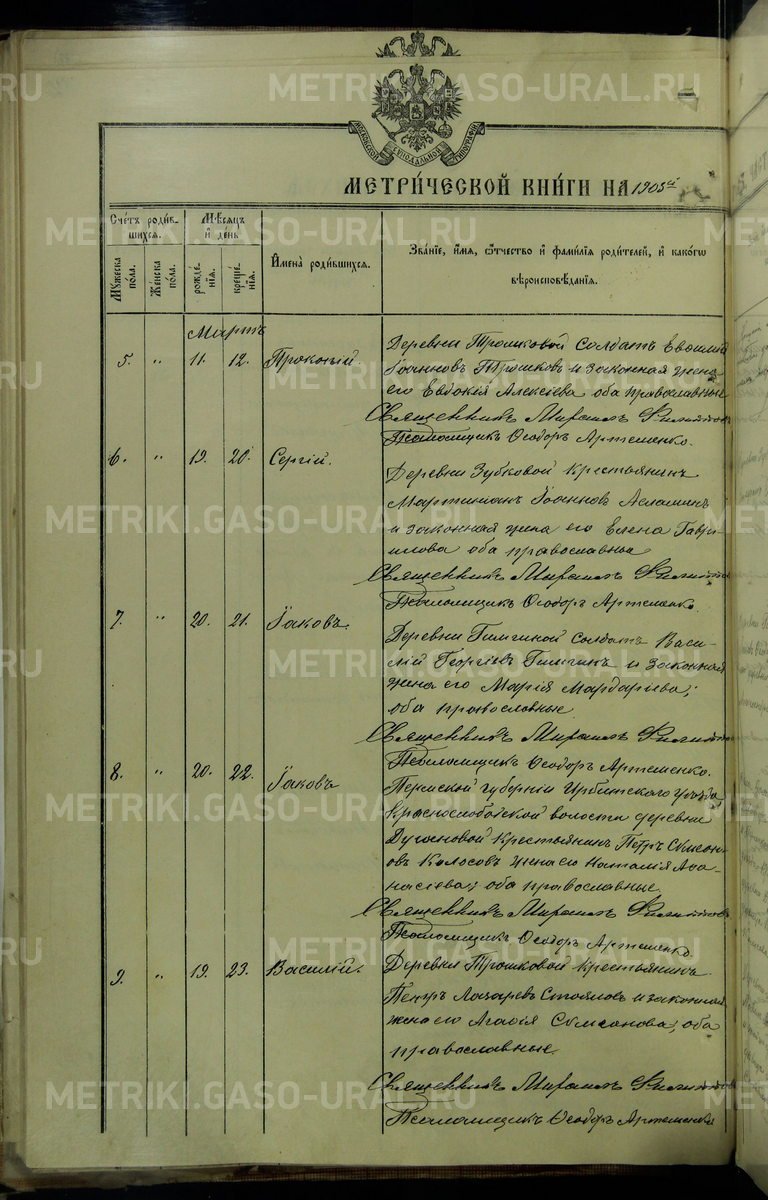 МОСКОВСКОЙ СѴНОДАЛЬНОЙ ТИПОГРАФІИ
МЕТРИ́ЧЕСКОЙ КНИ́ГИ НА 1905й
Сче́тъ роди́в-
шихся.
Му́жеска
по́ла.
Же́нска
по́ла.
Мѣ́сяцъ
и҆ де́нь
рожде́-
нїѧ.
креще́-
нїѧ.
И҆мена̀ роди́вшихся.
Зва́нїе, и҆́мя, ѻ҆́тчество и҆ фами́лїя роди́телей, и҆ како́гѡ
вѣроисповѣ́данїя.
Мартъ
5. " 11. 12. Прокопій.
Деревни Трошковой солдатъ
Іоанновъ Трошковъ и законная жена
его Евдокія Алексіева оба православные
Священникъ
Псаломщикъ Ѳеодоръ Артеменко.
6. " 19. 20. Сергій.
Деревни Зубковой крестьянинъ
Мартиніанъ Іоанновъ
и законная жена его Елена Гаври-
илова оба православные
Священникъ
Псаломщикъ Ѳеодоръ Артеменко.
7. " 20. 21. Іаковъ.
Деревни солдатъ Васи-
лій Георгіевъ и законная
жена его Марія Мардарьева;
оба православные
Священникъ
Псаломщикъ Ѳеодоръ Артеменко.
8. " 20. 22. Іаковъ
Пермской губерніи Ирбитскаго уѣзда
Краснослободской волости деревни
крестьянинъ Петръ Симеон-
овъ Колосовъ жена его Наталія Аѳа-
насіева; оба православные.
Священникъ
Псаломщикъ Ѳеодоръ Артеменко.
9. " 19. 23. Василій.
Деревни Трошковой крестьянинъ
Петръ Лазаревъ и законная
жена его Агаѳія Симеонова; оба
православные.
Священникъ
Псаломщикъ Ѳеодоръ Артеменко
METRIKI.GASO-URAL.RU